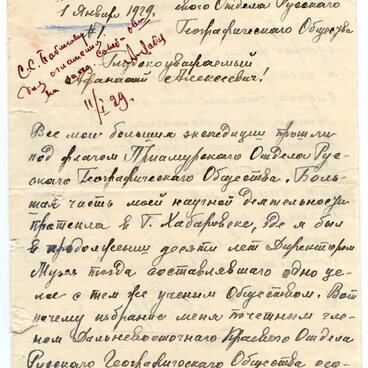 1 Январ 1929.
№1.
скаго Отдела Русскаго
Географическаго Общества
С.С. 
для оглашения
на засед.
11/I 29.
Глубокоуважаемый
Афанасий Алексеевич!
Все мои большия экспедиции прошли
под флагом Приамурского Отдела Рус-
скаго Географическаго Общества. Боль-
шая часть моей научной деятельности
протекла в Г. Хабаровске, где я был
в продолжении десяти лет Директором
Музея тогда составлявшаго одно це-
лое с тем же ученым Обществом. Вот
почему избрание меня почетным чле-
ном Дальневосточнаго Краевого Отдела
Русскаго Географическаго Общества осо-